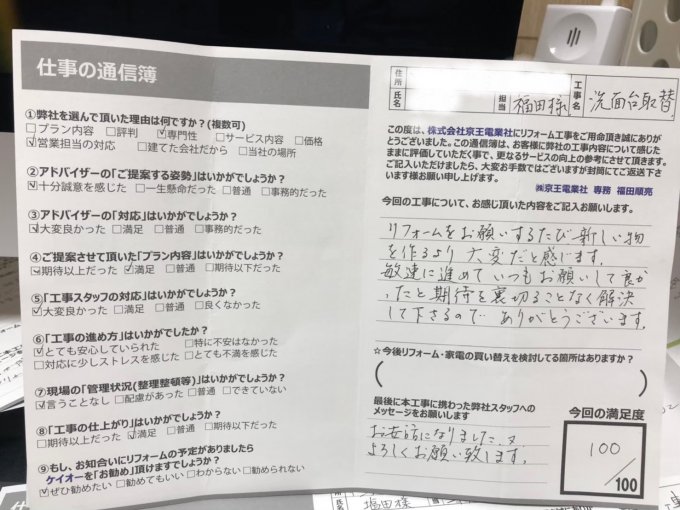 仕事の通信簿
①弊社を選んで頂いた理由は何ですか?(複数可)
□プラン内容 □評判 ☑専門性 □サービス内容 □価格
☑営業担当の対応 □建てた会社だから □当社の場所
②アドバイザーの「ご提案する姿勢」はいかがでしょうか?
☑十分誠意を感じた □一生懸命だった □普通 □事務的だった
③アドバイザーの「対応」はいかがでしょうか?
☑大変良かった □満足 □普通 □事務的だった
④ご提案させて頂いた「プラン内容」はいかがでしょうか?
☑期待以上だった ☑満足 □普通 □期待以下だった
⑤「工事スタッフの対応」はいかがでしょうか?
☑大変良かった □満足 □普通 □良くなかった
⑥「工事の進め方」はいかがでしたか?
☑とても安心していられた □特に不安はなかった
□対応に少しストレスを感じた □とても不満を感じた
⑦現場の「管理状況(整理整頓等)」はいかがでしょうか?
☑言うことなし □配慮があった □普通 □できていない
⑧「工事の仕上がり」はいかがでしょうか?
□期待以上だった ☑満足 □普通 □期待以下だった
⑨もし、お知合いにリフォームの予定がありましたら
ケイオーを「お勧め」頂けますでしょうか?
☑ぜひ勧めたい □勧めてもいい □わからない □勧められない
住所
氏名
担当 福田様
工事名 洗面台取替
この度は、株式会社京王電業社にリフォーム工事をご用命頂き誠にありが
とうございました。この通信簿は、お客様に弊社の工事内容について感じた
ままに評価していただく事で、更なるサービスの向上の参考にさせて頂きます。
ご記入いただけましたら、大変お手数ではございますが封筒にてご返送下さ
います様お願い申し上げます。
㈱京王電業社 専務 福田順亮
今回の工事について、お感じ頂いた内容をご記入お願します。
リフォームをお願いするたび新しい物
を作るより 大変だと感じます。
敏速に進めていつもお願いして良か
ったと期待を裏切ることなく解決
して下さるので ありがとうございます。
☆今後リフォーム・家電の買い替えを検討してる箇所はありますか?
( )
最後に本工事に携わった弊社スタッフへの
メッセージをお願いします
お世話になりました。又
よろしくお願い致します。
今回の満足度
100
/100
福田様